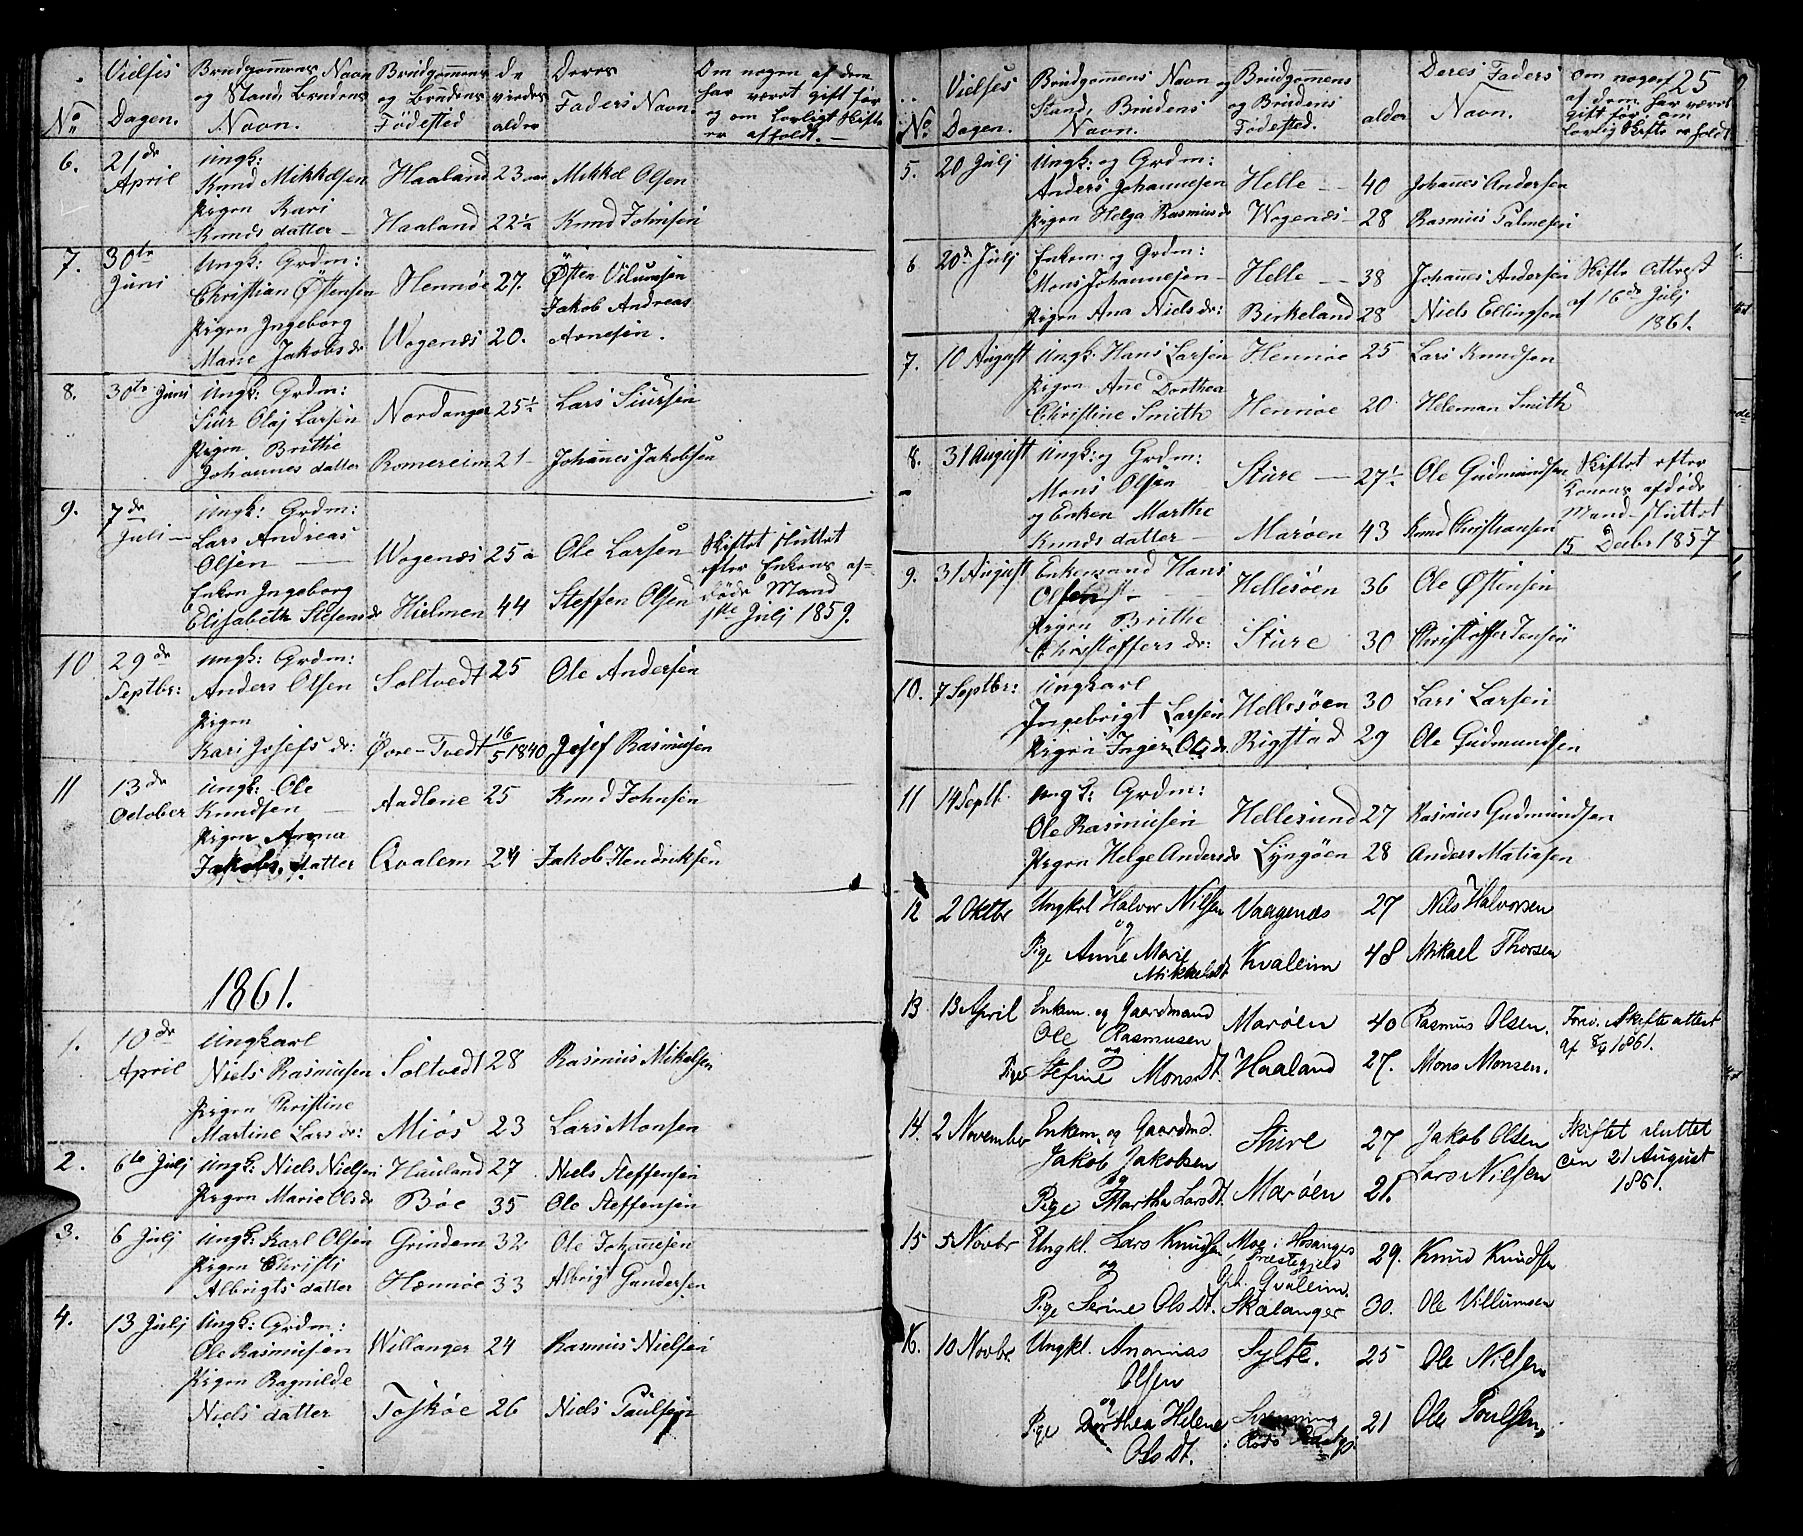 No.
Vielses
Dagen.
Brudgommens Navn
og Stand, Brudens
Navn.
Brudgommens
og Brudens
Fødested
de
vordes
alder
Deres
Faders Navn.
Om nogen af dem
har været gift før
og om lovligt Skifte
er afholdt. —
6.
21de
April
Ungk:
Knud Mikkelsen
Pigen Kari
Knuds datter —
Haaland
Haaland
23
22½
Mikkel Olsen
Knud Johnsen
7.
30te
Juni
Ungk: Grdm:
Christian Østensen
Pigen Ingeborg
Marie Jakobs dr
Hennøe
Wogenæs
27.
20.
Østen Vilumsen
Jakob Andreas
Arnesen.
8.
30te Juni
Ungk: Grdm:
Siur Olaj Larsen
Pigen Brithe
Johannes datter
Nordanger
Romereim
25½
21
Lars Siursen
Johannes Jakobsen
9.
7de
Juli —
Ungk: Grdm:
Lars Andreas
Olsen —
Enken Ingeborg
Elisabeth Stefens dr
Wogenæs
Hielmen
25
44
Ole Larsen
Steffen Olsen
Skiftet sluttet
efter Enkens af=
døde Mand
1ste Julj 1859.
10
29de
Septbr:
Ungk: Grdm:
Anders Olsen
Pigen
Kari Josefs dr:
Soltvedt
Øvre-Tvedt
25
16/5 1840
Ole Andersen
Josef Rasmusen
11
13de
October
Ungk: Ole
Knudsen —
Pigen Anna
Jakobs datter
Aadlene
Qvalem
25
24
Knud Johnsen
Jakob Hendriksen
1861.
1.
10de
April
Ungkarl
Niels Rasmusen
Pigen Christine
Martine Lars dr:
Soltvedt
Miøs
28
23
Rasmus Mikelsen
Lars Monsen
2.
6te Julj
Ungk: Niels Nielsen
Pigen Marie Ols dr
Hauland
Bøe
27
35
Niels Steffensen
Ole Steffensen
3.
6 Julj
Ungk: Karl Olsen
Pigen Christi
Albrigts datter
Grindem
Hennøe
32
33
Ole Johannesen
Albrigt Gundersen
4.
13 Julj
Ungk: Grdm:
Ole Rasmusen
Pigen Ragnilde
Niels datter
Willanger
Toskøe
24
26
Rasmus Nielsen
Niels Paulsen
No.
Vielses
Dagen.
Brudgommens Navn og
Stand, Brudens
Navn.
Brudgommens
og Brudens
Fødested.
alder
Deres Faders
Navn.
25
om nogen
af dem har været
gift før, om
lovlig Skifte er holdt
5.
20 Julj
Ungk: og Grdm:
Anders Johannesen
Pigen Helga Rasmus dr
Helle —
Wogenæs
40
28
Johannes Andersen
Rasmus Palmesen
6
20de Julj
Enkem. og Grdm:
Mons Johannesen
Pigen Ana Niels dr:
Helle —
Birkeland
38
28
Johannes Andersen
Niels Ellingsen
Skifte Attest
af 16de Julj
1861.
7.
10 August
Ungk. Hans Larsen
Pigen Ane Dorthea
Christine Smith
Hennøe
Hennøe
25
20
Lars Knudsen
Heleman Smith
8.
31 August
Ungk: og Grdm:
Mons Olsen
og Enken Marthe
Knuds datter —
Sture
Marøen
27½
43
Ole Gudmundsen
Knud Christiansen
Skiftet efter
Konens afdøde
Mand sluttet
15 Decbr 1857
9.
31 August
Enkemand Hans
Olsen
Pigen Brithe
Christoffers dr:
Hellesøen
Sture
36
30
Ole Østensen
Christoffer Jensen
10.
7 Septbr:
Ungkarl
Ingebrigt Larsen
Pigen Inger Ols dr.
Hellesøen
Rigstad
30
29
Lars Larsen
Ole Gudmundsen
11
14 Septb.
Ungk: Grdm:
Ole Rasmusen
Pigen Helge Anders dr
Hellesund
Lyngøen
27
28
Rasmus Gudmundsen
Anders Matiasen
12
2 Oktbr
Ungkrl Halvor Nilsen
og
Pige Anne Marie
Mikkelsdt.
Vaagenæs
Kvaleim
27
48
Nils Halvorsen
Mikael Thorsen
13
13 April
Enkem. og Gaardmand
Ole Rasmusen
og
Pige Stefine Monsdt.
Marøen
Haaland
40
27.
Rasmus Olsen.
Mons Monsen.
Forev. Skifteattest
af 8/4 1861.
14.
2 November
Enkem. og Gaardmd.
Jakob Jakobsen
og
Pige Martha Larsdt.
Sture
Marøen
27
21.
Jakob Olsen
Lars Nilsen
Skiftet sluttet
den 21 August
1861.
15
5 Novbr
Ungkl. Lars Knudsen
og
Pige Serine Olsdt.
Moe i Hosangers
Præstegjeld
Qvaleim.
Skælanger
29.
30.
Knud Knudsen
Ole Villumsen
16.
10 Novbr.
Ungkl. Ananias
Olsen
og
Pige Dorthea Helene
Olsdt.
Sylte.
25
21
Ole Nilsen
Ole Poulsen